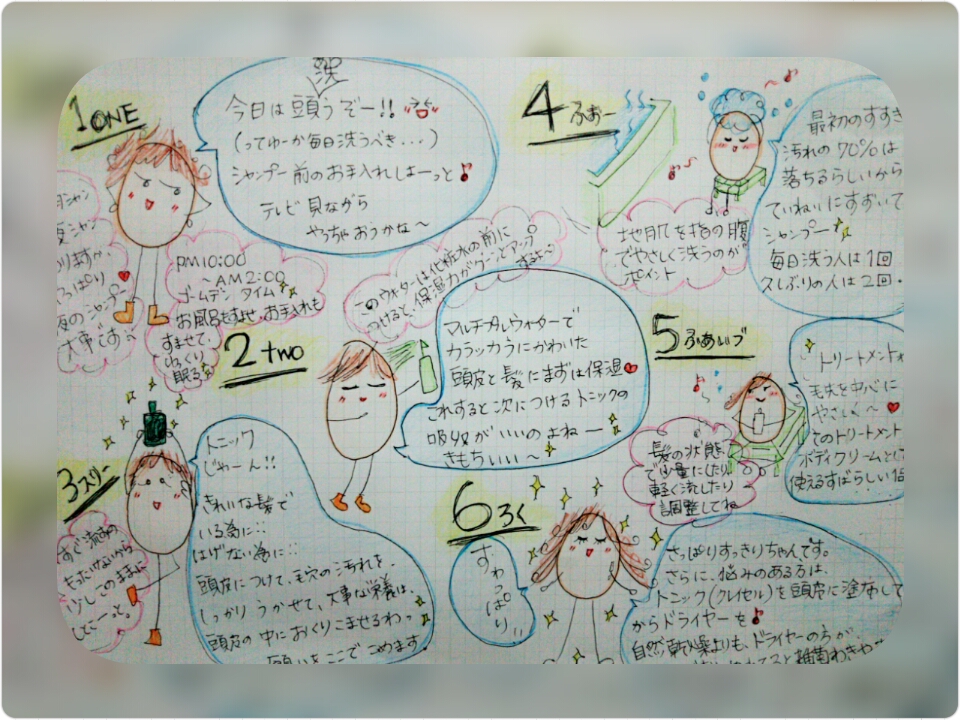 1 ONE
洗
今日は頭うぞー!!
(ってゆーか毎日洗うべき・・・)
シャンプー前のお手入れしまーっと♪
テレビ見ながら
やっちゃおうかな〜
シャン
シャン
ぱり
のシャンプー
大事です〜
PM10:00
〜AM2:00
ゴールデンタイム
お風呂もすませ、お手入れも
すませて、
ゆっくり
眠ろう
2 two
このウォーターは化粧水の前に
つけると、保湿力がグーンとアップ
するよ〜
マルチプルウォーターで
カラッカラにかわいた
頭皮と髪にまずは保湿
これすると次につけるトニックの
吸収がいいのよねー
きもちいい〜
3 スリー
すぐ
もったいないから
少しこのままに
しとこーっと♪
トニック
じゃーん!!
きれいな髪で
いる為に::
はげない為に::
頭皮につけて、毛穴の汚れを、
しっかりうかせて、大事な栄養は、
頭皮の中におくりこませるわっ
願いをここでこめます。
4 ふぉー
地肌を指の腹
でやさしく洗うのが
ポイント
最初のすすぎ
汚れの70%は
落ちるらしいから
ていねいにすすいで
シャンプー
毎日洗う人は1回
久しぶりの人は2回.
5 ふぁいブ
髪の状態
で少量にしたり
軽く流したり
調整してね
トリートメント
毛先を中心に
やさしく〜
このトリートメント
ボディクリームとし
使えるすばらしい
6 ろく
すわっぱり
さっぱりすっきりちゃんです。
さらに、悩みのある方は、
トニック(クレセル)を頭皮に塗布して
からドライヤーを♪
自然乾燥よりも、ドライヤーの方が、
雑菌わきゃ